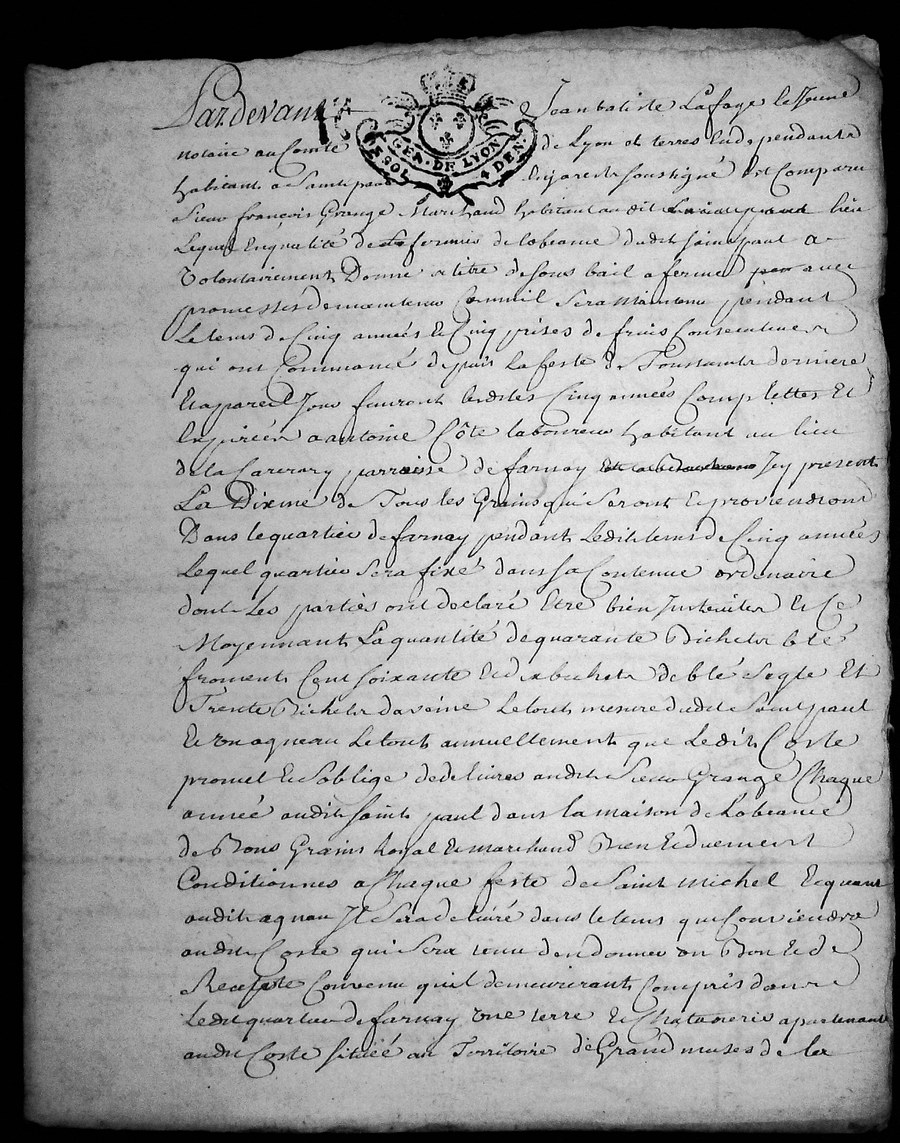 Pardevant Jean batiste Lafaye le Jeune
notaire au Comté de Lyon et terres En dependants
habitant a Saint paul En jarest sousigné Est Comparu
Sieur françois Grange Marchand habitant au dit lieu
Lequel En qualité de fermier de dudit saint paul a
Volontairement Donné a titre de sous bail a ferme avec
promesses de maintenir Comme il Sera Maintenu pendant
Le tems de Cinq années Et Cinq prises de fruis Consecutives
qui ont Commancé depuis La feste de Toussaints derniere
Et a pareil Jour finiront lesdites Cinq années Complettes Et
Expirées a antoine Côte laboureur habitant au lieu
de la parroisse de farnay Icy present
La Dixme de Tous les Grains qui Seront Et proviendront
Dans le quartier de farnay pendant Ledit tems de Cinq années
Lequel quartier Sera fixé dans sa Contenue ordenaire
dont Les parties ont declaré Etre bien Instruites Et Ce
Moyennant La quantité de quarante Bichets blé
froment Cent soixante Et dix bichets de blé Segle Et
Trente Bichets daveine Le tout mesure dudit Saint paul
Et un agneau Le tout annuellement que Ledit Coste
promet Et Soblige de delivrer audit Sieur Grange Chaque
année audit Saint paul dans la maison de
de Bons Grains Loyal Et marchand Bien Et duement
Conditionnes a Chaque feste de Saint Michel Et quant
audit agnau Il Sera delivré dans le tems qui Conviendra
audit Coste qui Sera tenu den donner un Bon Et de
Recepte Convenu quil demeureront Compris dans
Ledit quartier de farnay une terre Et apartenant
audit Coste situés au Territoire de Grand de la
GEN. DE LYON
4 DEN.